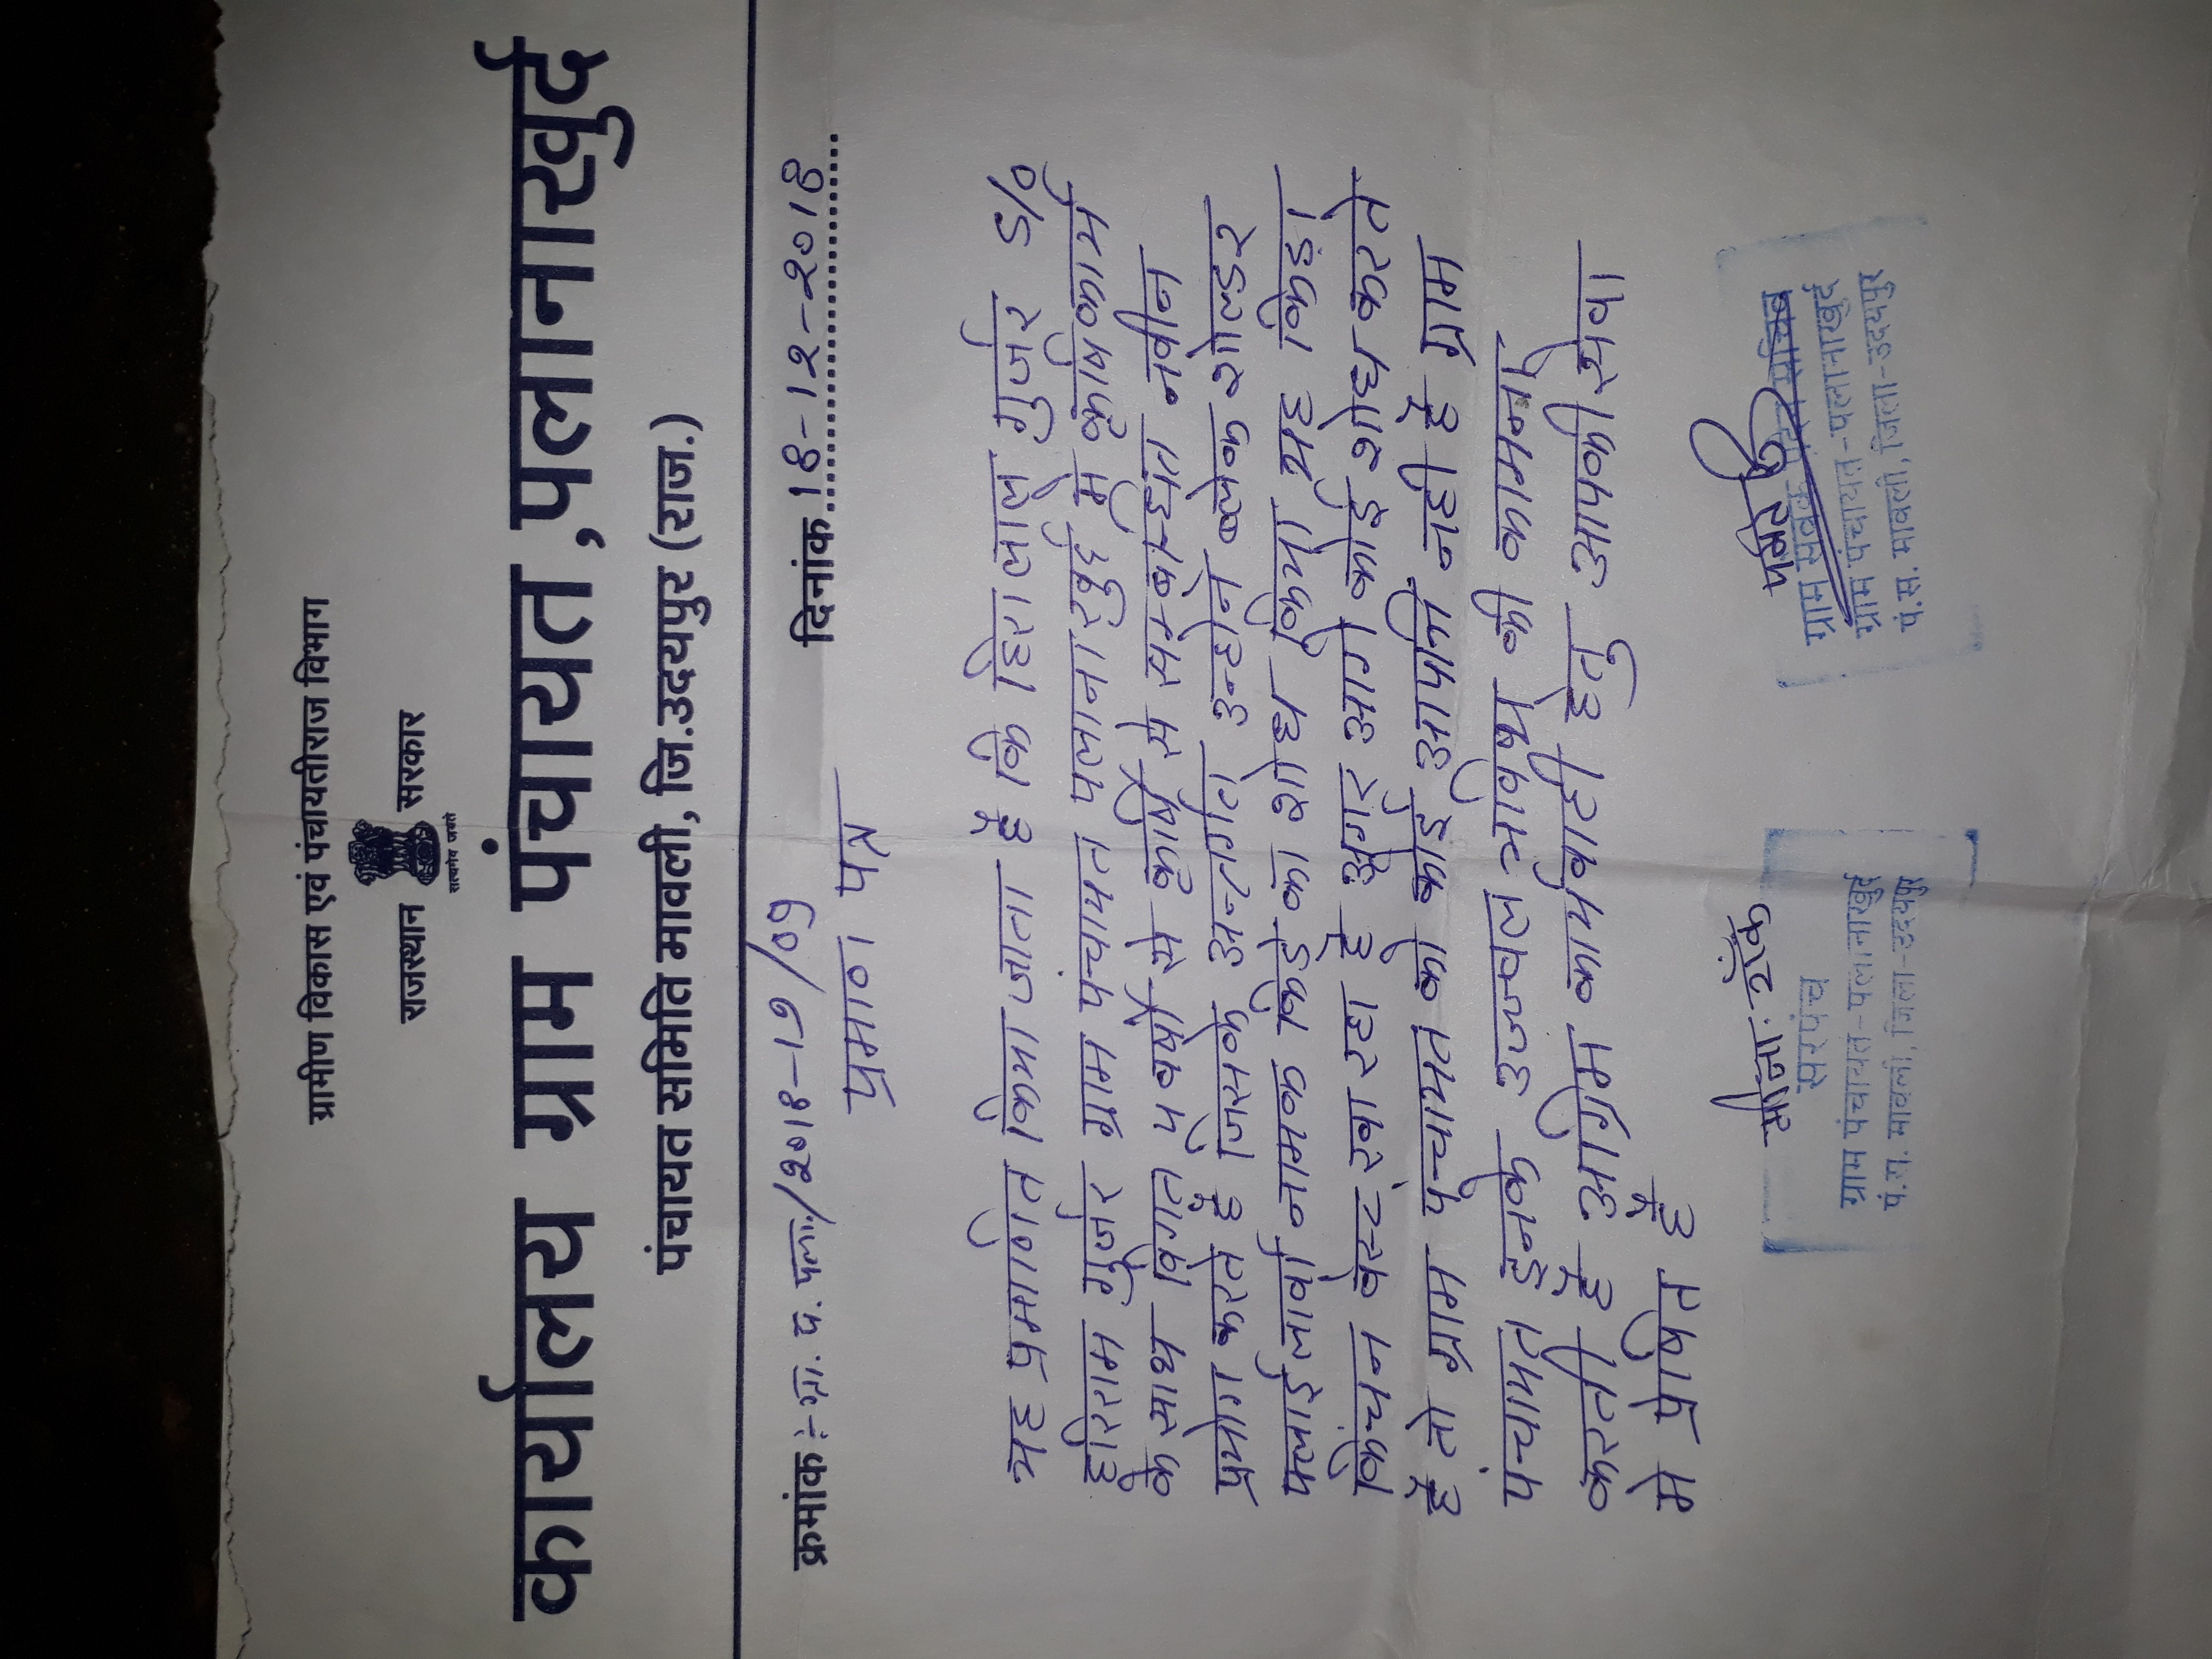 ग्रामीण विकास एवं पंचायतीराज विभाग
राजस्थान सरकार
सत्यमेव जयते
कार्यालय ग्राम पंचायत,पलानाखुर्द
पंचायत समिति मावली, जि.उदयपुर (राज.)
क्रमांक :-ग्रा. प. फला./2018-19/09 दिनांक 18-12-2018
प्रमाण पत्र
यह प्रमाणित किया जाता है कि हिरालाल गुर्जर S/o
हरिराम गुर्जर ग्राम पंचायत पलानाखुर्द मे कृषि कार्य
के साथ विगत 5 वर्षो से कृषि से सम्बन्धित नवीन
प्रयोग करते है जिसके अन्तर्गत उन्होने ब्लेक शोल्डर
फ्लाई लार्वा नामक किडे का शोध किया यह किडा
किचन वेस्ट खा रहा है अगर आगे कोई शोध करते
है तो ग्राम पंचायत को कोई आपत्ति नही है ग्राम
पंचायत इनके उज्ज्वल भविष्य की कामना
करती है अग्रिम कार्यवाही हेतु आपकी सेवा
मे प्रेषित है
सरपंच
ग्राम पंचायत-पलानाखुर्द
पं.स. मावली, जिला-उदयपुर
ग्राम सेवक
ग्राम पंचायत-पलानाखुर्द
पं.स. मावली, जिला-उदयपुर